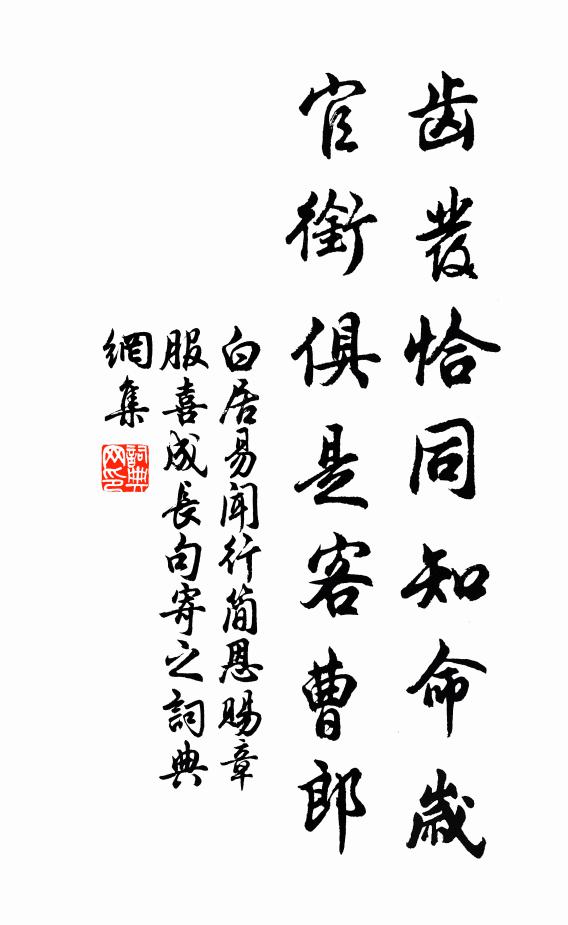 齒發恰同知命歲
官銜俱是客曹郎
白居易聞行簡恩賜章
服喜成長句寄之詞典
網集
詞典
网印